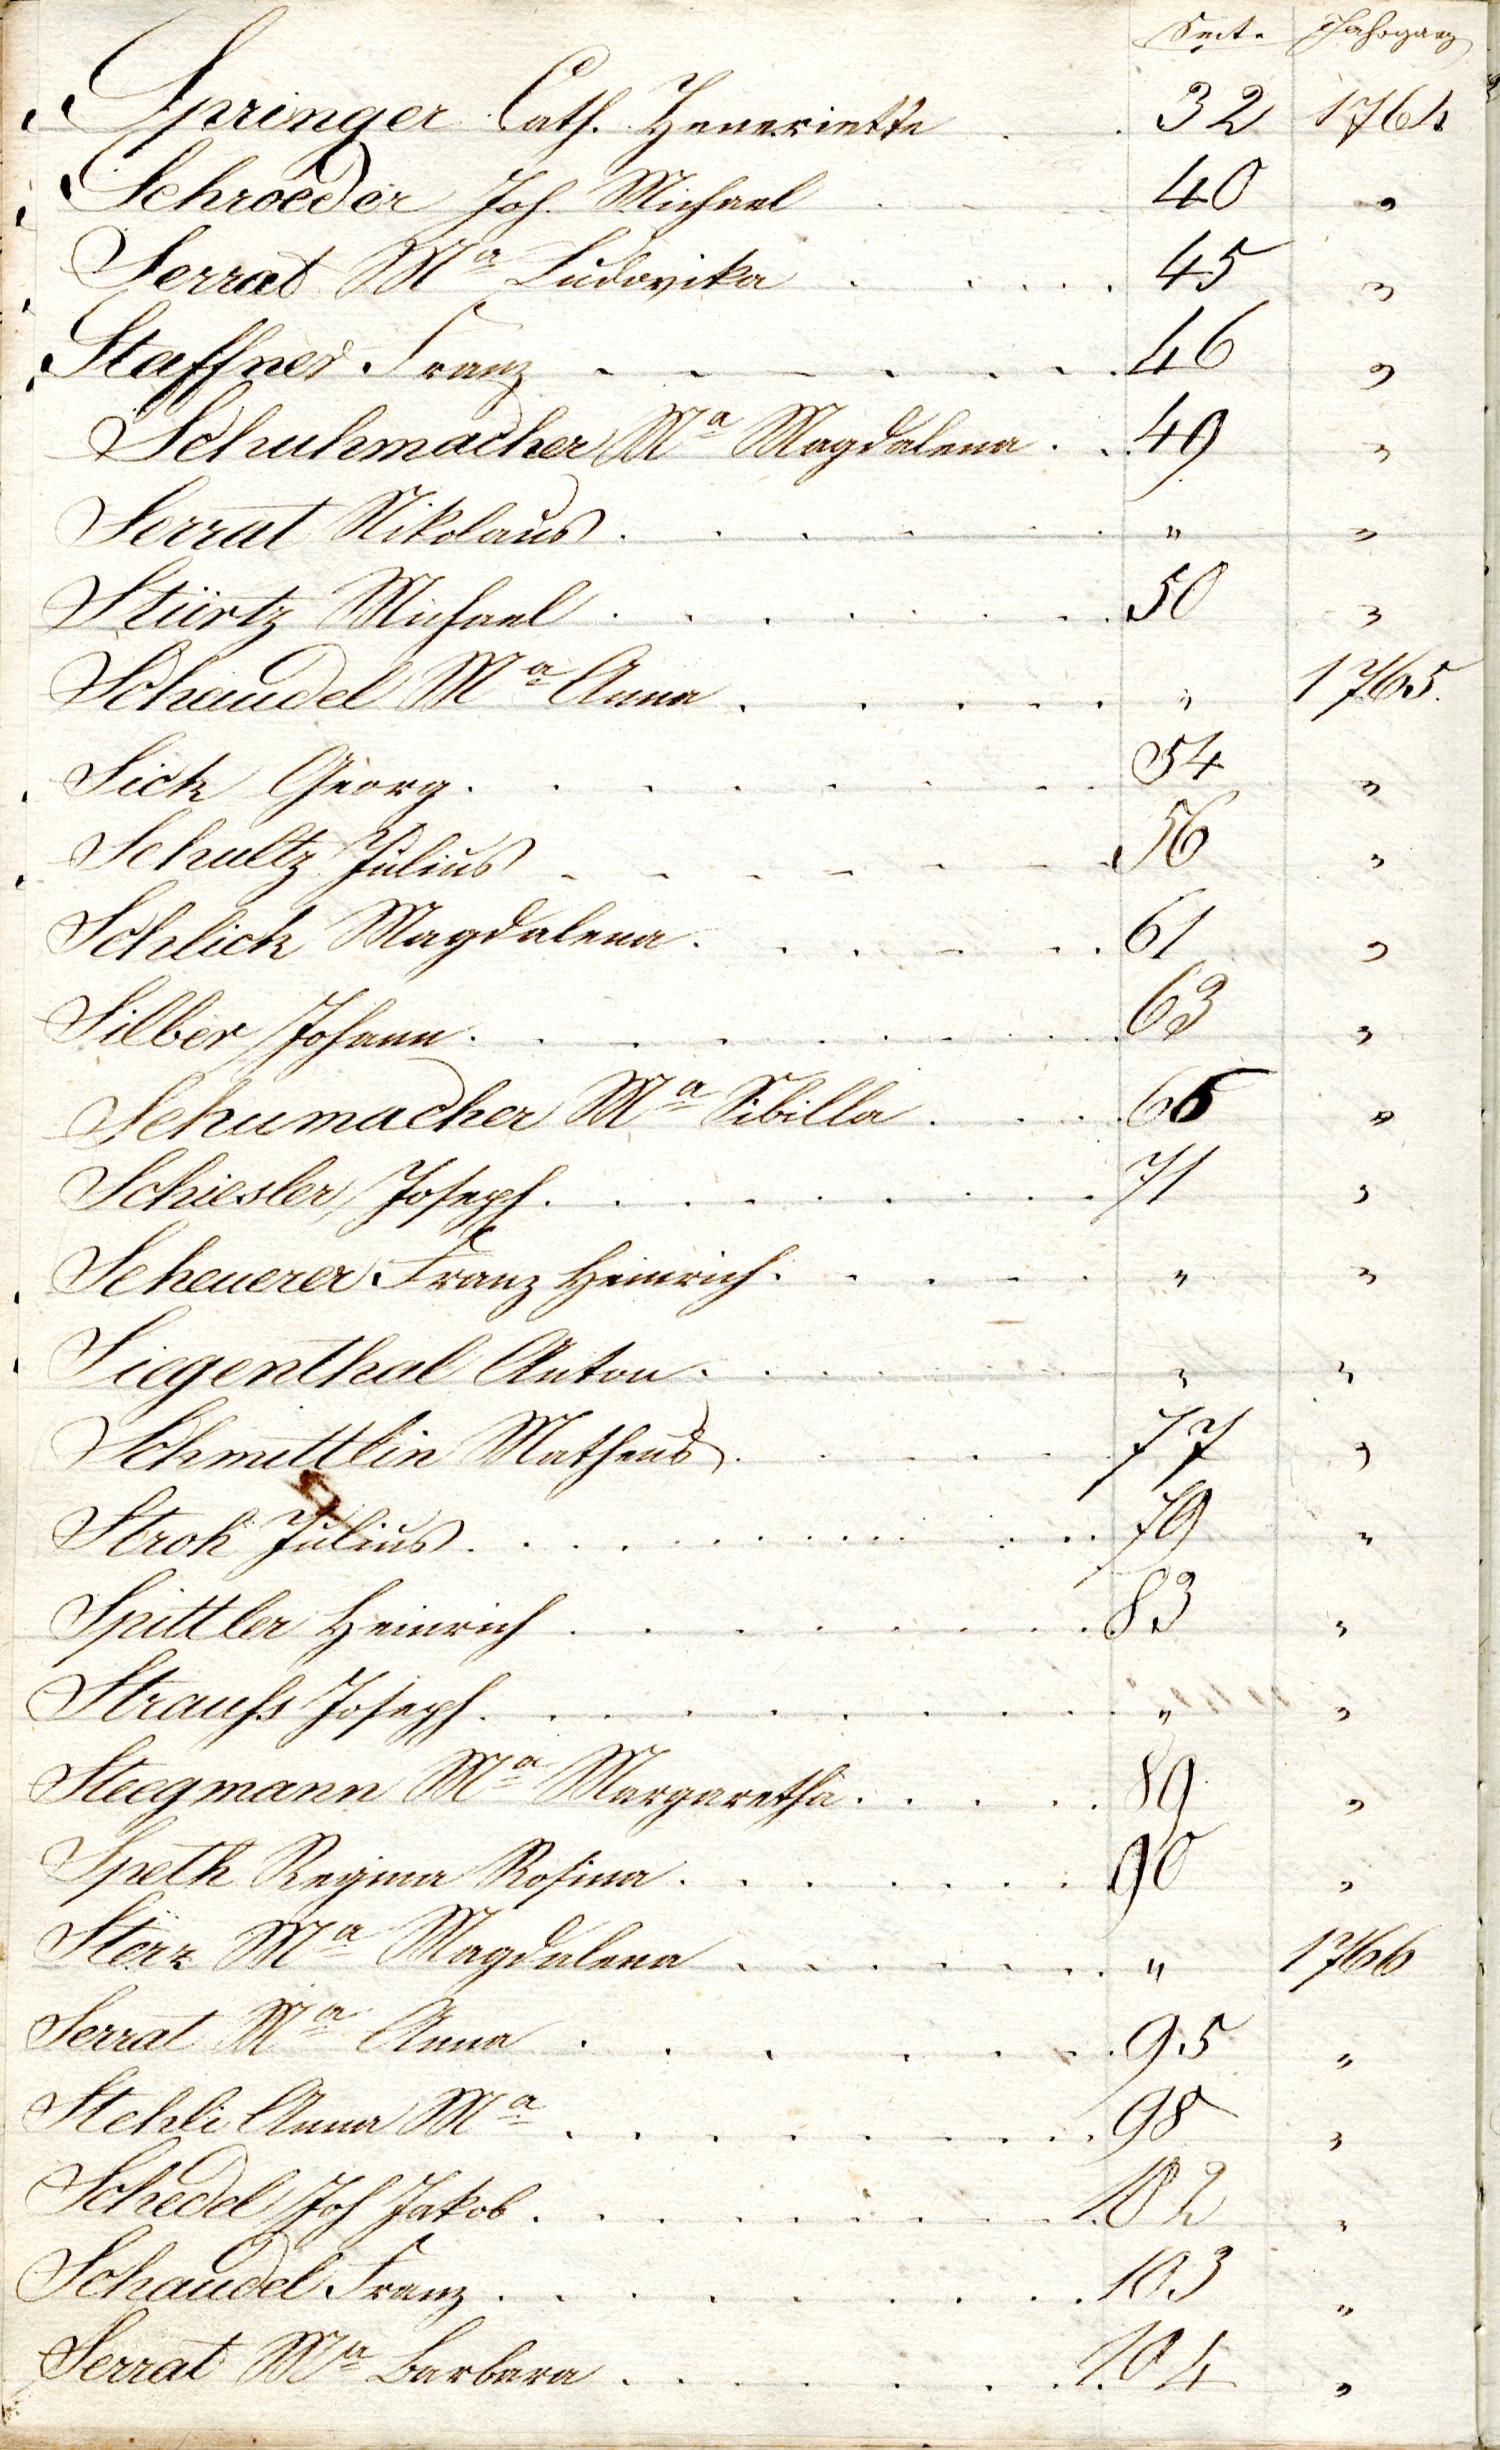 Seite Jahrgang
Springer Cath. Heneriette . . 32 1764
Schroeder Joh. Michael . . . 40 "
Serrat Ma Ludovika . . . . . 45 "
Staffner Franz . . . . . . . 46 "
Schuhmacher Ma Magdalena . . 49 "
Serrat Nikolaus . . . . . . " "
Stürtz Michael . . . . . . . 50 "
Schaudel Ma Anna . . . . . . " 1765.
Sick Georg . . . . . . . . 54 "
Schultz Julius . . . . . . . 56 "
Schlick Magdalena . . . . . . 61 "
Silber Johann . . . . . . . . 63 "
Schumacher Ma Sibilla . . . . 65 "
Schiesler Joseph . . . . . . . 71 "
Scheuerer Franz Heinrich . . . . . " "
Siegenthal Anton . . . . . " "
Schmittlin Matheus . . . . . 77 "
Stroh Julius . . . . . . . . . 79 "
Spittler Heinrich . . . . . . . 83 "
Strauſs Joseph . . . . . . . . " "
Steegmann Ma Margaretha . . . . . 89 "
Speth Regina Rosina . . . . . . 90 "
Sterz Ma Magdalena . . . . . . . " 1766
Serrat Ma Anna . . . . . . . 95 "
Stehli Anna Ma . . . . . . . . 98 "
Schedel Joh Jakob . . . . . . . . 102 "
Schaudel Franz . . . . . . . . 103 "
Serrat Ma Barbara . . . . . . . 104 "